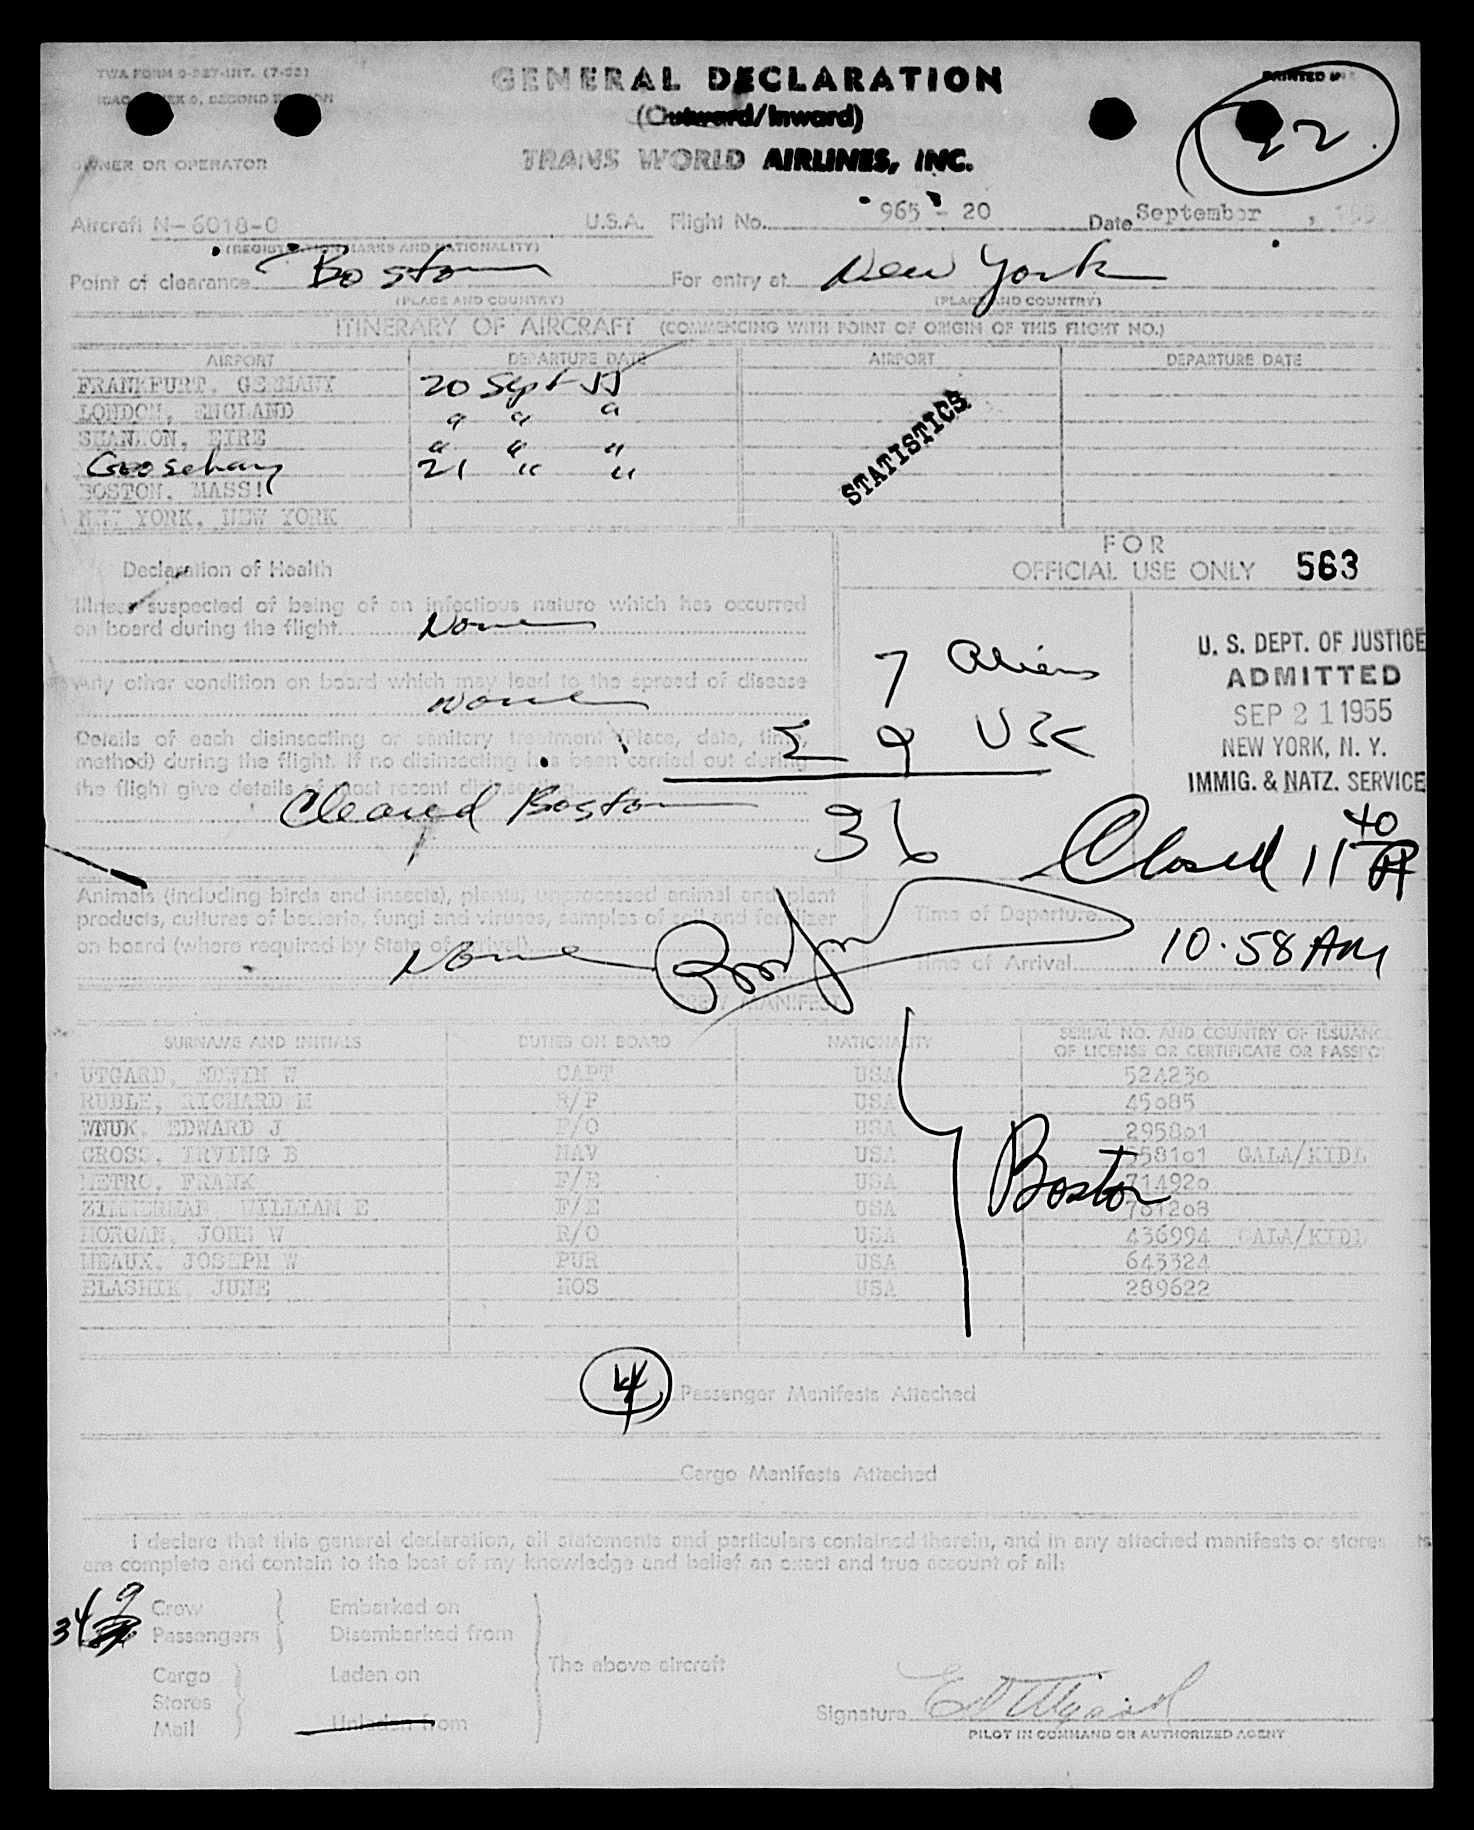 TWA FORM 0-527-INT. (7-55)
GENERAL DECLARATION
PRINTED IN
(Outward/Inward)
22
OWNER OR OPERATOR
TRANS WORLD AIRLINES, INC.
Aircraft N-6018-C U.S.A. Flight No. 965 - 20 Date September
(REGISTRATION MARKS AND NATIONALITY)
Point of clearance Boston For entry at New York
(PLACE AND COUNTRY) (PLACE AND COUNTRY)
ITINERARY OF AIRCRAFT (COMMENCING WITH POINT OF ORIGIN OF THIS FLIGHT NO.)
AIRPORT DEPARTURE DATE AIRPORT DEPARTURE DATE
FRANKFURT, GERMANY 20 Sept 55
LONDON, ENGLAND " " "
SHANNON, EIRE " " "
Goosebay 21 " "
BOSTON, MASS
NEW YORK, NEW YORK
STATISTICS
FOR
OFFICIAL USE ONLY 563
Declaration of Health
Illness suspected of being of an infectious nature which has occurred
on board during the flight. None
Any other condition on board which may lead to the spread of disease
None
Details of each disinsecting or sanitary treatment (Place, date, time,
method) during the flight. If no disinsecting has been carried out during
the flight give details of most recent disinsecting
Cleared Boston
7 Aliens
29 USC
36
U. S. DEPT. OF JUSTICE
ADMITTED
SEP 21 1955
NEW YORK, N. Y.
IMMIG. & NATZ. SERVICE
Closed 11 40
Animals (including birds and insects), plants, unprocessed animal and plant
products, cultures of bacteria, fungi and viruses, samples of soil and fertilizer
on board (where required by State of arrival). None
Time of Departure
10.58 AM
Time of Arrival
CREW MANIFEST
SURNAME AND INITIALS DUTIES ON BOARD NATIONALITY SERIAL NO. AND COUNTRY OF ISSUANCE
OF LICENSE OR CERTIFICATE OR PASSPO
UTGARD, EDWIN W CAPT USA 524230
RUBLE, RICHARD M R/P USA 45085
WNUK, EDWARD J F/O USA 295801
GROSS, IRVING B NAV USA 58101 GALA/KIDL
METRO, FRANK F/E USA 714920
ZIMMERMAN, WILLIAM E F/E USA 781208
MORGAN, JOHN W R/O USA 436994 GALA/KIDL
MEAUX, JOSEPH W PUR USA 643324
ELASHIK, JUNE HOS USA 289622
Boston
4 Passenger Manifests Attached
Cargo Manifests Attached
I declare that this general declaration, all statements and particulars contained therein, and in any attached manifests or stores
are complete and contain to the best of my knowledge and belief an exact and true account of all:
9 Crew Embarked on
34 Passengers Disembarked from
The above aircraft
Cargo Laden on
Stores
Mail Unladen from
Signature
PILOT IN COMMAND OR AUTHORIZED AGENT